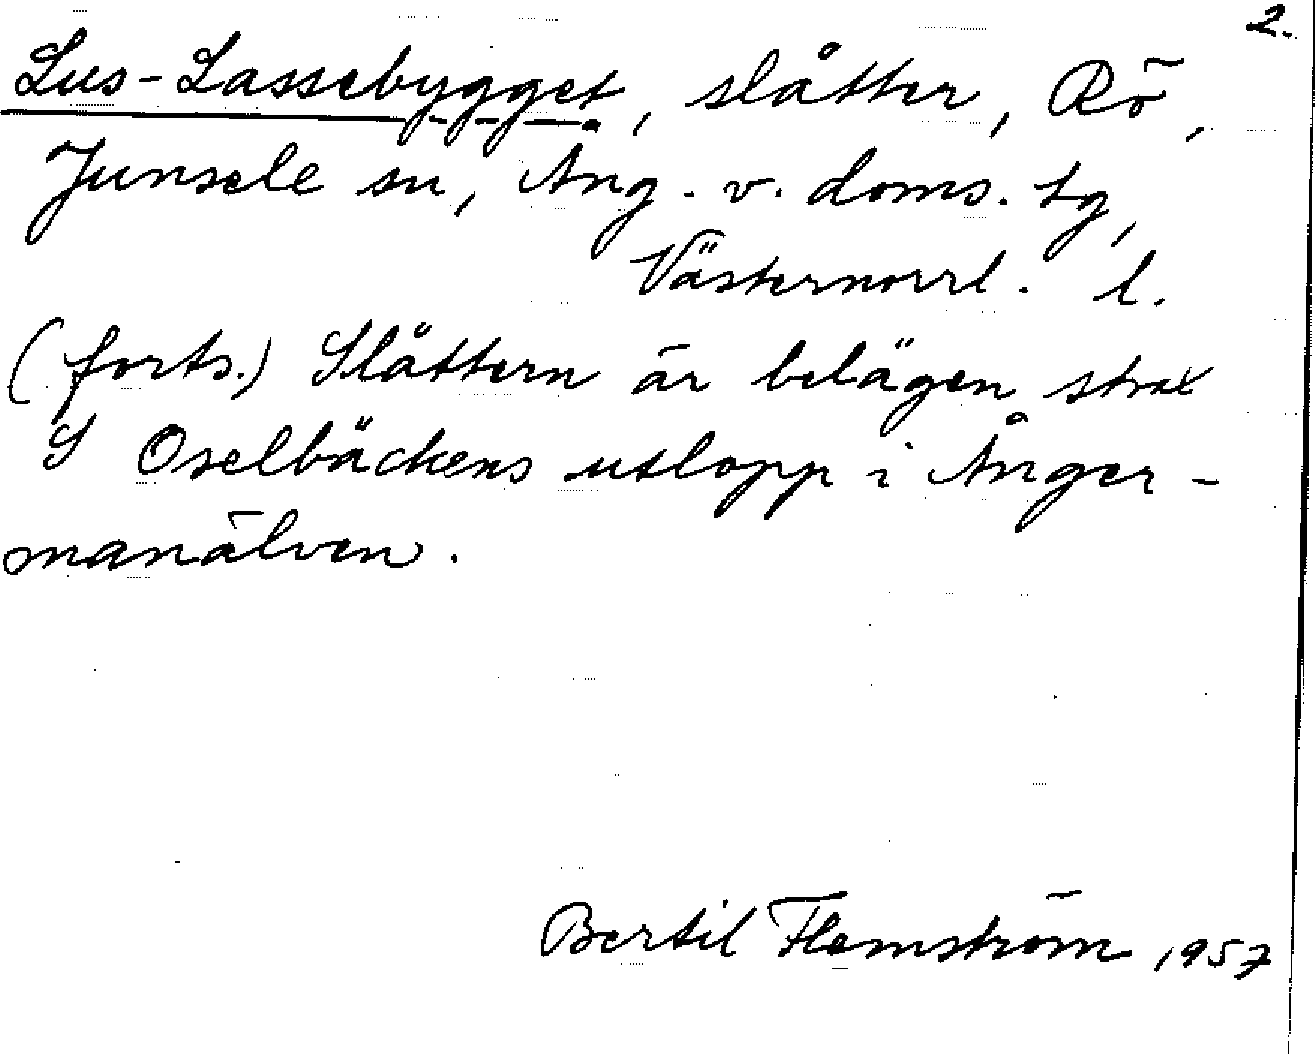 2.
Lus-Lassebygget, slåtter, Rö,
Junsele sn, Ång. v. doms. tg,
Västernorrl. l.
(forts.) Slåttern är belägen strax
S Oselbäckens utlopp i Ånger-
manälven.
Bertil Flemström 1957